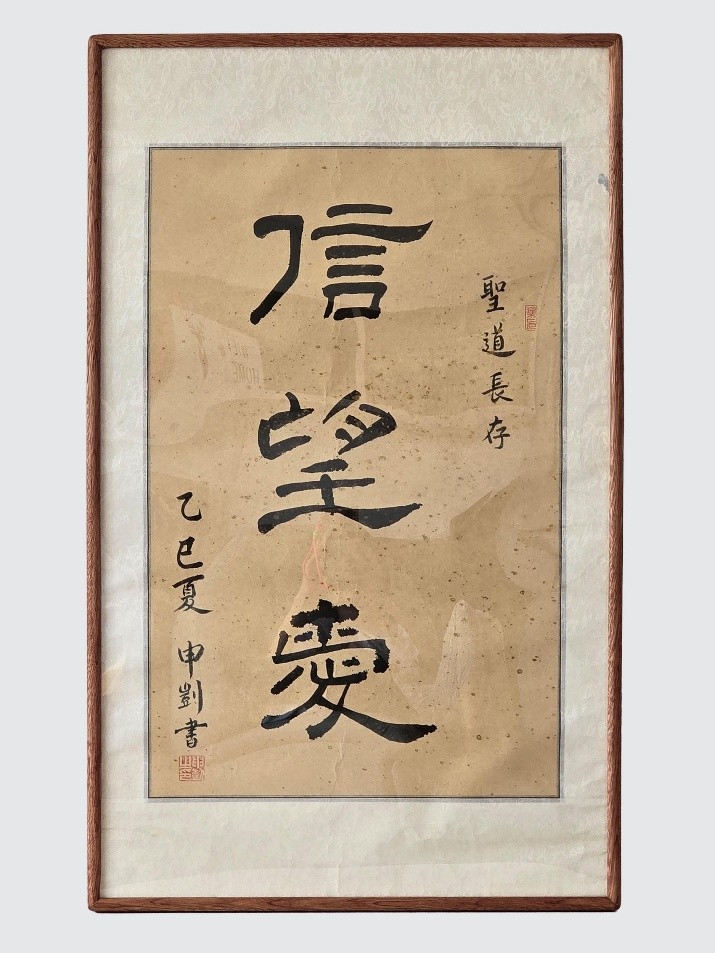 聖道長存
信望愛
乙巳夏 申剴書